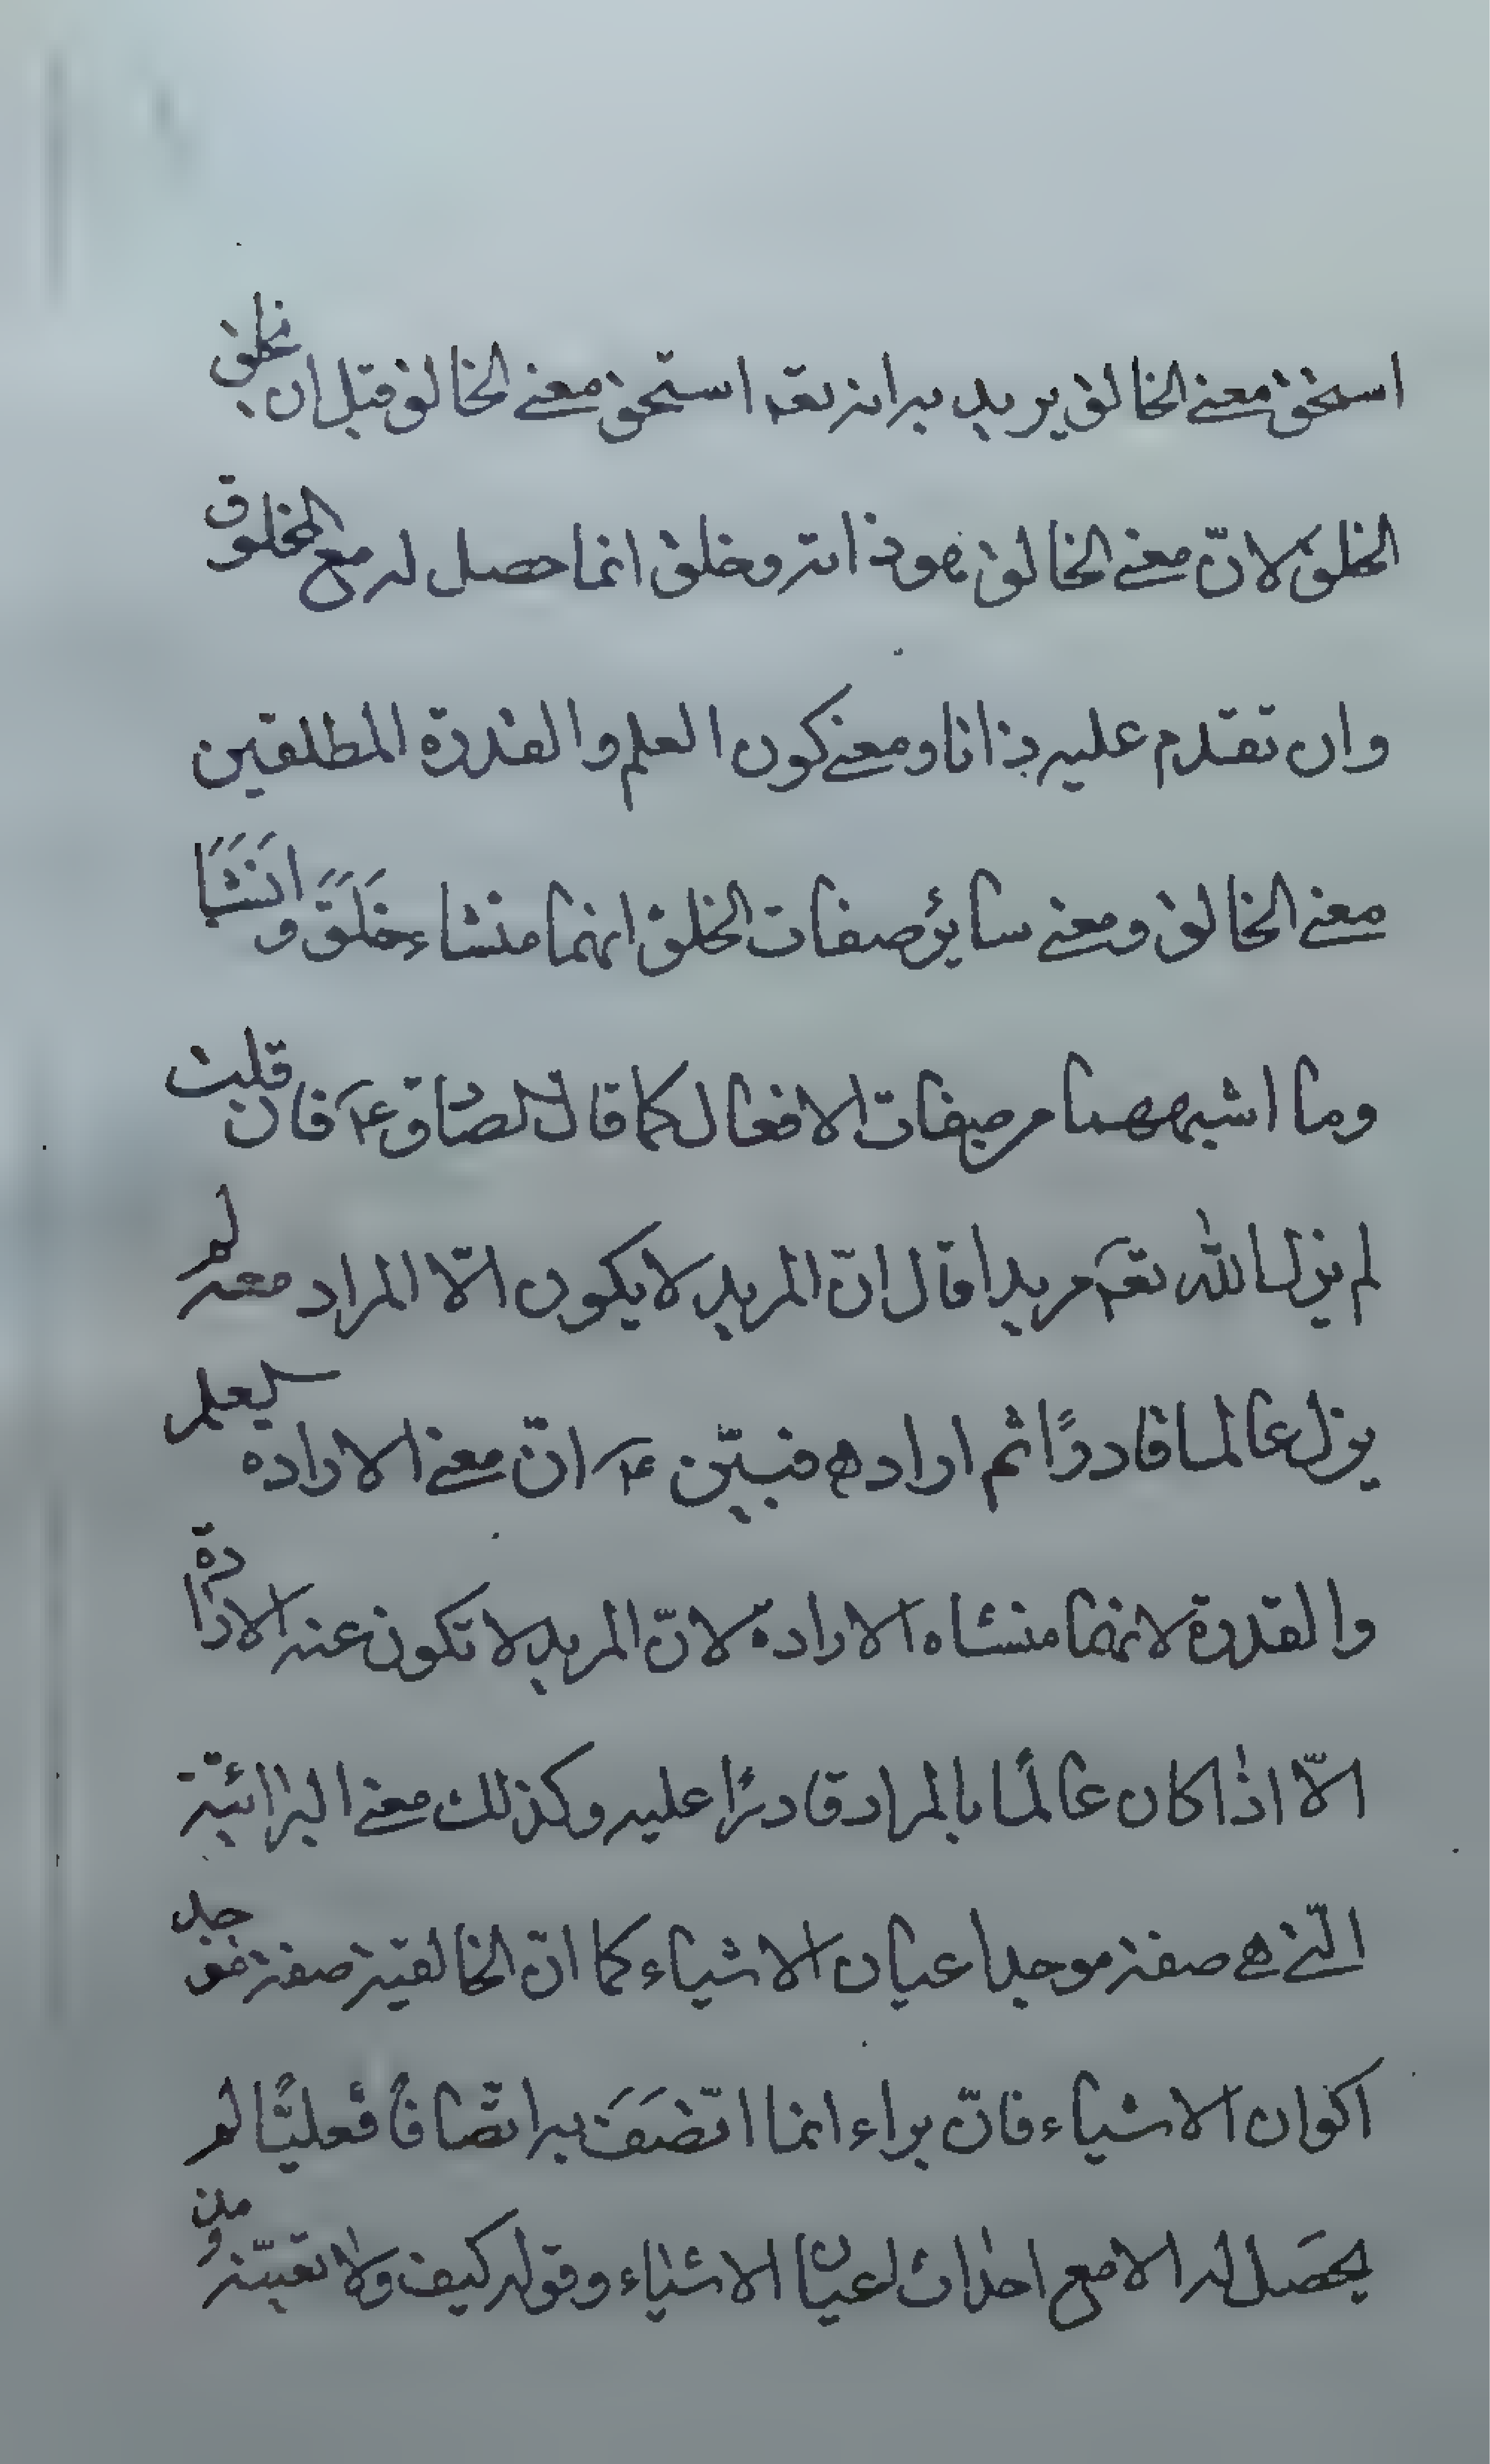 استحق معنى الخالق يريد به انه تعم استحق معنى الخالق قبل ان يخلق
الخلق لانّ معنى الخالق هو ذاته وخلق انما حصل له مع المخلوق
وان تقدم عليه ذاتا ومعنى كون العلم والقدرة المطلقين
معنى الخالق ومعنى سائر صفات الخلق انهما منشاء خَلَقَ و اَنَشَاَ
وما اشبههما من صفات الافعال كما قال الصادق ع فان قلت
لم يزل الله تعم مريدا قال انّ المريد لا يكون الّا المراد معه لم
يزل عالما قادرًا ثم اراده فبيّن ع انّ معنى الاراده ليس العلم
والقدرة لانهما منشاه الارادة لانّ المريد لا تكون عنه الارادة
الّا اذا كان عالمًا بالمراد قادرًا عليه وكذلك معنى البرائيّة
الّتى هى صفة موجد اعيان الاشياء كما انّ الخالقية صفة موجد
اكوان الاشياء فانّ براء انما اتّصَفَ به اتّصافًا فعليّا لم
يحصَل له الا مع احداث اعيان الاشياء وقوله كيف ولا تعيّنه من